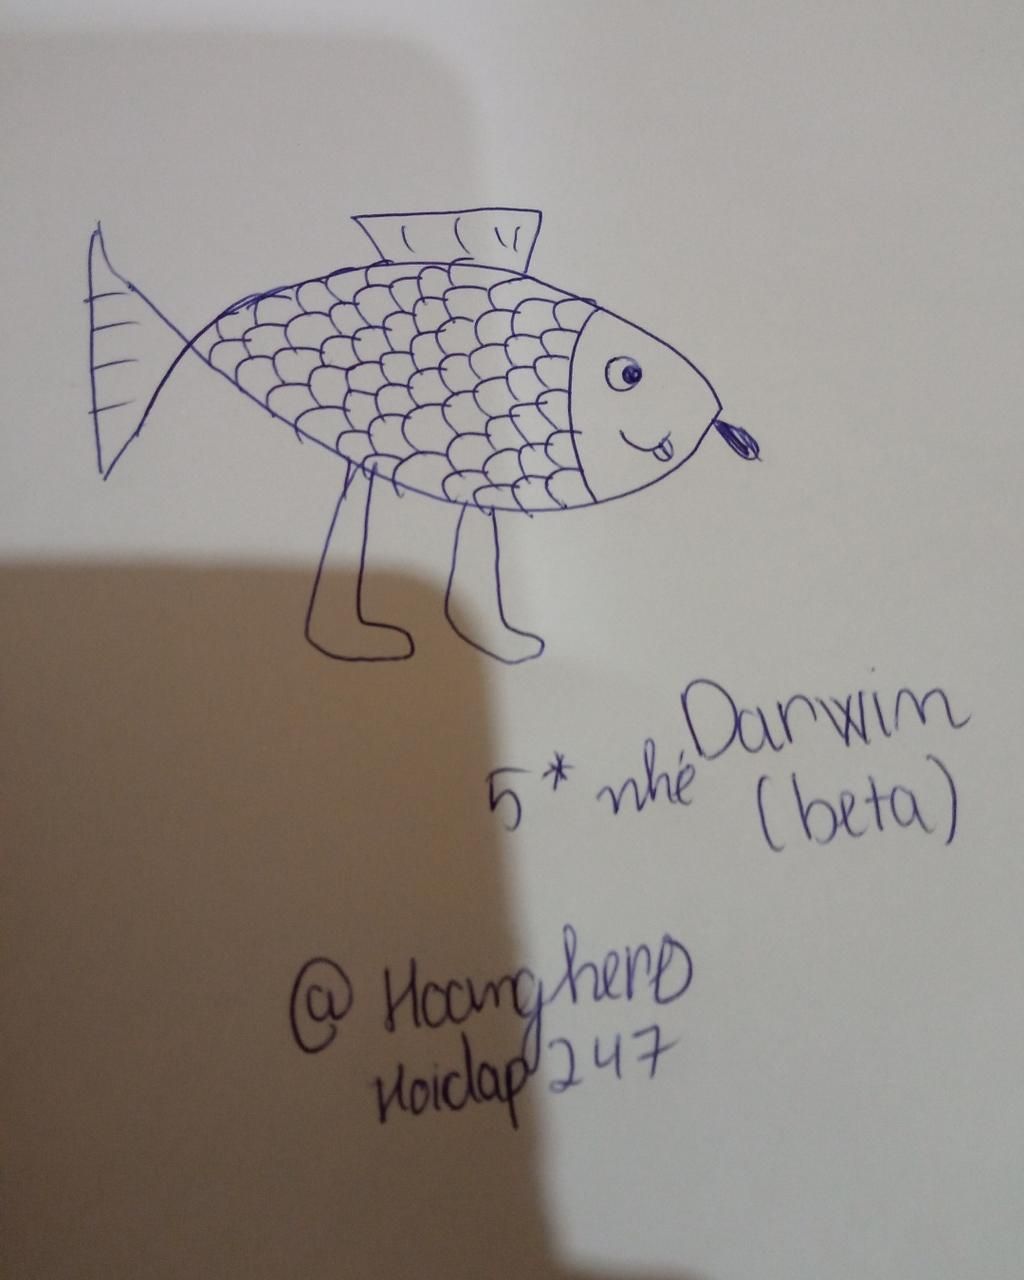 Darwin
5* nhé (beta)
@ Hoanghero
Hoidap247